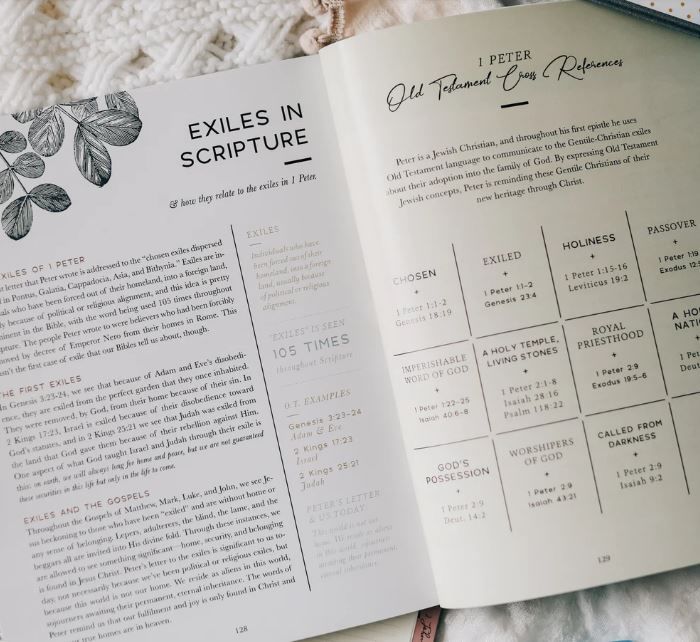 EXILES IN
SCRIPTURE
& how they relate to the exiles in 1 Peter.
EXILES OF 1 PETER
letter that Peter wrote is addressed to the "chosen exiles dispersed
in Pontus, Galatia, Cappadocia, Asia, and Bithynia." Exiles are in-
who have been forced out of their homeland, into a foreign land,
because of political or religious alignment, and this idea is pretty
in the Bible, with the word being used 105 times throughout
The people Peter wrote to were believers who had been forcibly
by decree of Emperor Nero from their homes in Rome. This
the first case of exile that our Bibles tell us about, though.
THE FIRST EXILES
In Genesis 3:23-24, we see that because of Adam and Eve's disobedi-
ence, they are exiled from the perfect garden that they once inhabited.
They were removed by God, from their home because of their sin. In
2 Kings 17:23, Israel is exiled because of their disobedience toward
God's statutes, and in 2 Kings 25:21 we see that Judah was exiled from
the land that God gave them because of their rebellion against Him.
One aspect of what God taught Israel and Judah through their exile is
this: on earth, we will always long for home and peace, but we are not guaranteed
these securities in this life but only in the life to come.
EXILES AND THE GOSPELS
Throughout the Gospels of Matthew, Mark, Luke, and John, we see Je-
sus beckoning to those who have been "exiled" and are without home or
any sense of belonging. Lepers, adulterers, the blind, the lame, and the
beggars all are invited into His divine fold. Through these instances, we
are allowed to see something significant—home, security, and belonging
is found in Jesus Christ. Peter's letter to the exiles is significant to us to-
day, not necessarily because we've been political or religious exiles, but
because this world is not our home. We reside as aliens in this world,
sojourners awaiting their permanent, eternal inheritance. The words of
Peter remind us that our fulfillment and joy is only found in Christ and
true homes are in heaven.
EXILES
Individuals who have
been forced out of their
homeland, into a foreign
land, usually because
of political or religious
alignment.
"EXILES" IS SEEN
105 TIMES
throughout Scripture
O.T. EXAMPLES
Genesis 3:23-24
Adam & Eve
2 Kings 17:23
Israel
2 Kings 25:21
Judah
PETER'S LETTER
& US TODAY
This world is not our
home. We reside as aliens
in this world, sojourners
awaiting their permanent,
eternal inheritance.
128
1 PETER
Old Testament Cross References
Peter is a Jewish Christian, and throughout his first epistle he uses
Old Testament language to communicate to the Gentile-Christian exiles
about their adoption into the family of God. By expressing Old Testament
Jewish concepts, Peter is reminding these Gentile Christians of their
new heritage through Christ.
CHOSEN
+
1 Peter 1:1-2
Genesis 18:19
EXILED
+
1 Peter 1:1-2
Genesis 23:4
HOLINESS
+
1 Peter 1:15-16
Leviticus 19:2
PASSOVER
+
1 Peter 1:19
Exodus
IMPERISHABLE
WORD OF GOD
+
1 Peter 1:22-25
Isaiah 40:6-8
A HOLY TEMPLE,
LIVING STONES
+
1 Peter 2:1-8
Isaiah 28:16
Psalm 118:22
ROYAL
PRIESTHOOD
+
1 Peter 2:9
Exodus 19:5-6
A
GOD'S
POSSESSION
+
1 Peter 2:9
Deut. 14:2
WORSHIPERS
OF GOD
+
1 Peter 2:9
Isaiah 43:21
CALLED FROM
DARKNESS
+
1 Peter 2:9
Isaiah 9:2
129